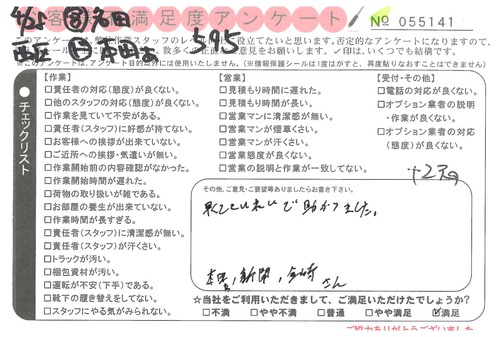 客 満足度アンケート
№ 055141
5915
スタッフの
役立てたいと思います。否定的なアンケートになりますので、
数多くの 意見をお願いします。
いくつでも結構です。
※このアンケートは、アンケート目的以外には使用いたしません。(※情報保護シールは1度はがすと、再度貼りなおすことはできません)
チェックリスト
【作業】
□責任者の対応(態度)が良くない。
□他のスタッフの対応(態度)が良くない。
□作業を見ていて不安がある。
□責任者(スタッフ)に好感が持てない。
□お客様への挨拶が出来ていない。
□ご近所への挨拶・気遣いが無い。
□作業開始前の内容確認がなかった。
□作業開始時間が遅れた。
□荷物の取り扱いが雑である。
□お部屋の養生が出来ていない。
□作業時間が長すぎる。
□責任者(スタッフ)に清潔感が無い。
□責任者(スタッフ)が汗くさい。
□トラックが汚い。
□梱包資材が汚い。
□運転が不安(下手)である。
□靴下の履き替えをしてない。
□スタッフにやる気がみられない。
【営業】
□見積もり時間に遅れた。
□見積もり時間が長い。
□営業マンに清潔感が無い。
□営業マンが煙草くさい。
□営業マンが汗くさい。
□営業態度が良くない。
□営業の説明と作業が一致してない。
【受付・その他】
□電話の対応が良くない。
□オプション業者の説明
・作業が良くない。
□オプション業者の対応
(態度)が良くない。
その他、ご意見・ご要望等ありましたらお書き下さい。
早くていねいで助かりました。
さん
☆当社をご利用いただきまして、ご満足いただけたでしょうか?
□不満 □やや不満 □普通 □やや満足 ☑満足
ご協力ありがとうございました